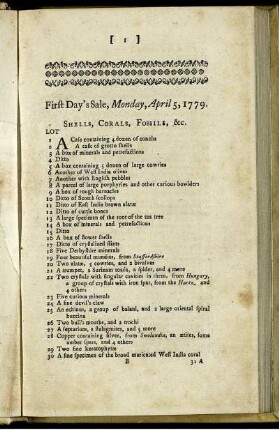 [ 1 ]
First Day's Sale, Monday, April 5, 1779.
Shells, Corals, Fossils, &c.
LOT
1 A Case containing 4 dozen of conchs
2 A case of grotto shells
3 A box of minerals and petrefactions
4 Ditto
5 A box containing 5 dozen of large cowries
6 Another of West India olives
7 Another with English pebbles
8 A parcel of large porphyries and other curious bowlders
9 A box of rough barnacles
10 Ditto of Scotch scollops
11 Ditto of East India brown
12 Ditto of cuttle bones
13 A large specimen of the root of the tea tree
14 A box of minerals and petrefactions
15 Ditto
16 A box of flower shells
17 Ditto of crystalised flints
18 Five Derbyshire minerals
19 Four beautiful from Staffordshire
20 Two 5 cowries, and 2 bivalves
21 A trumpet, 2 Surinam toads, a spider, and 4 more
22 Two crystals with singular cavities in them, from Hungary,
a group of crystals with iron spar, from the Hartz, and
4 others
23 Five curious minerals
24 A fine devil's claw
25 An echinus, a group of balani, and 2 large oriental spiral
buccina
26 Two bull's mouths, and 2 trochi
27 A septarium, a and 5 more
28 Copper containing silver, from an some
amber spar, and 4 others
29 Two fine keratophytes
30 A fine specimen of the broad West India coral
B 31 A